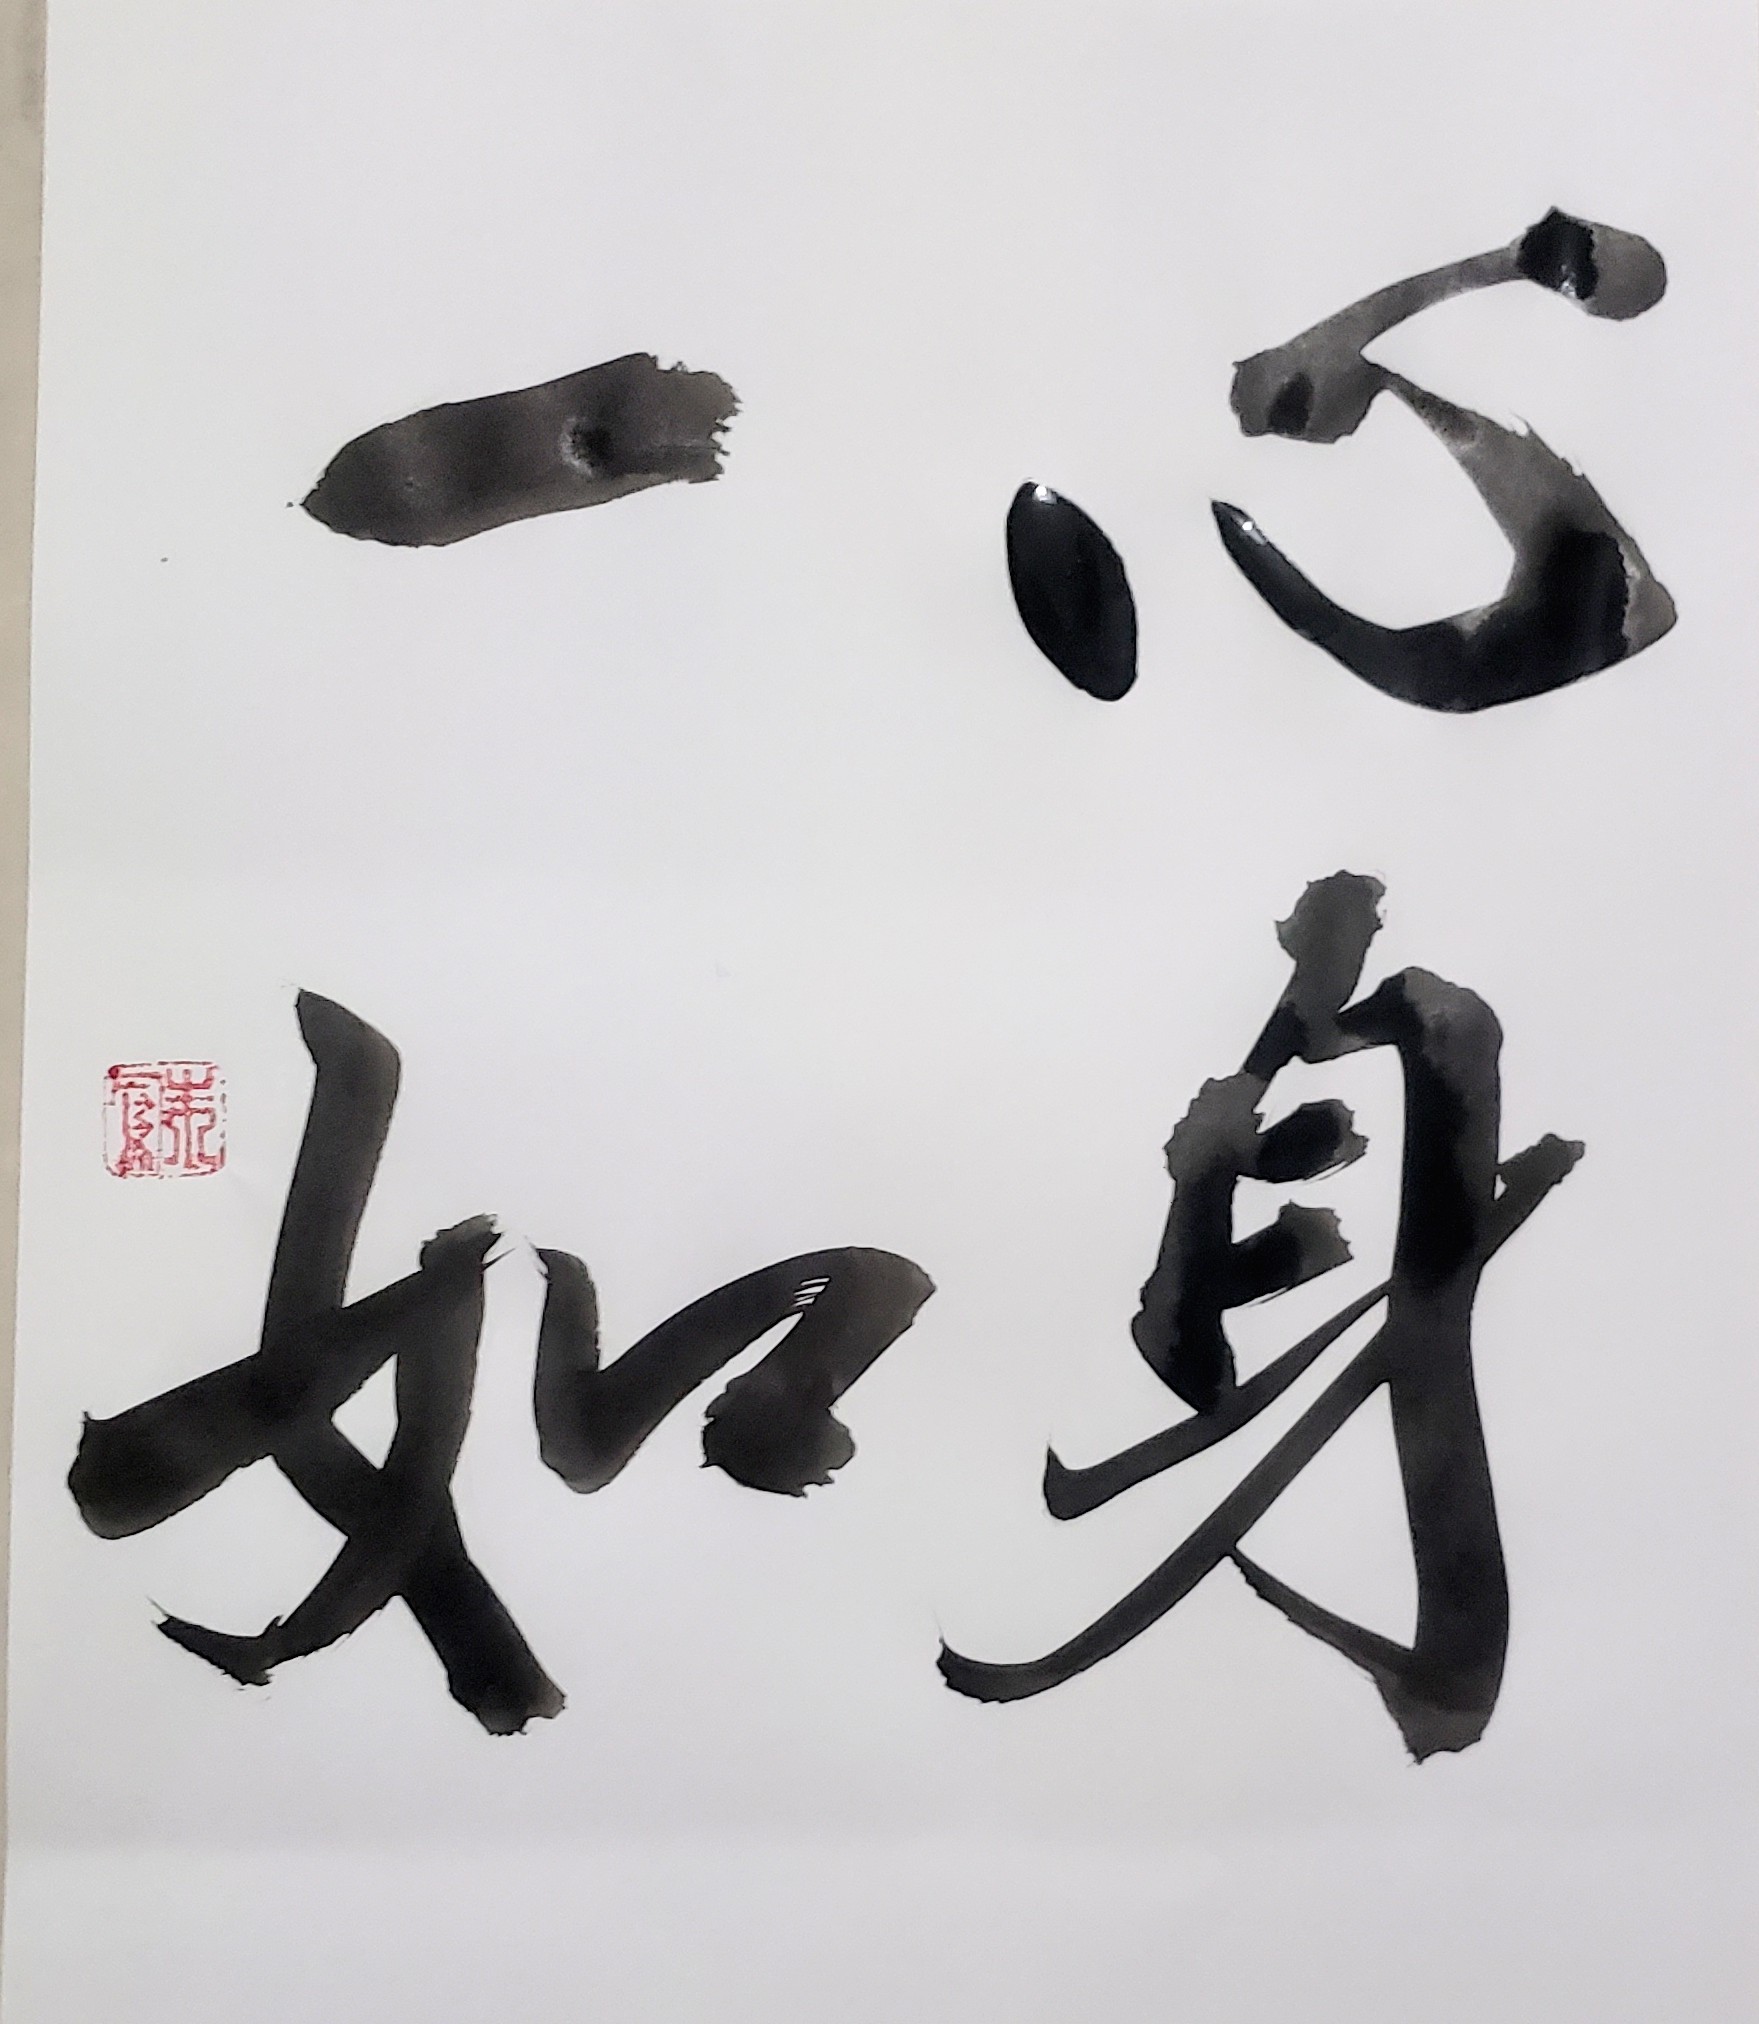 心身
一如